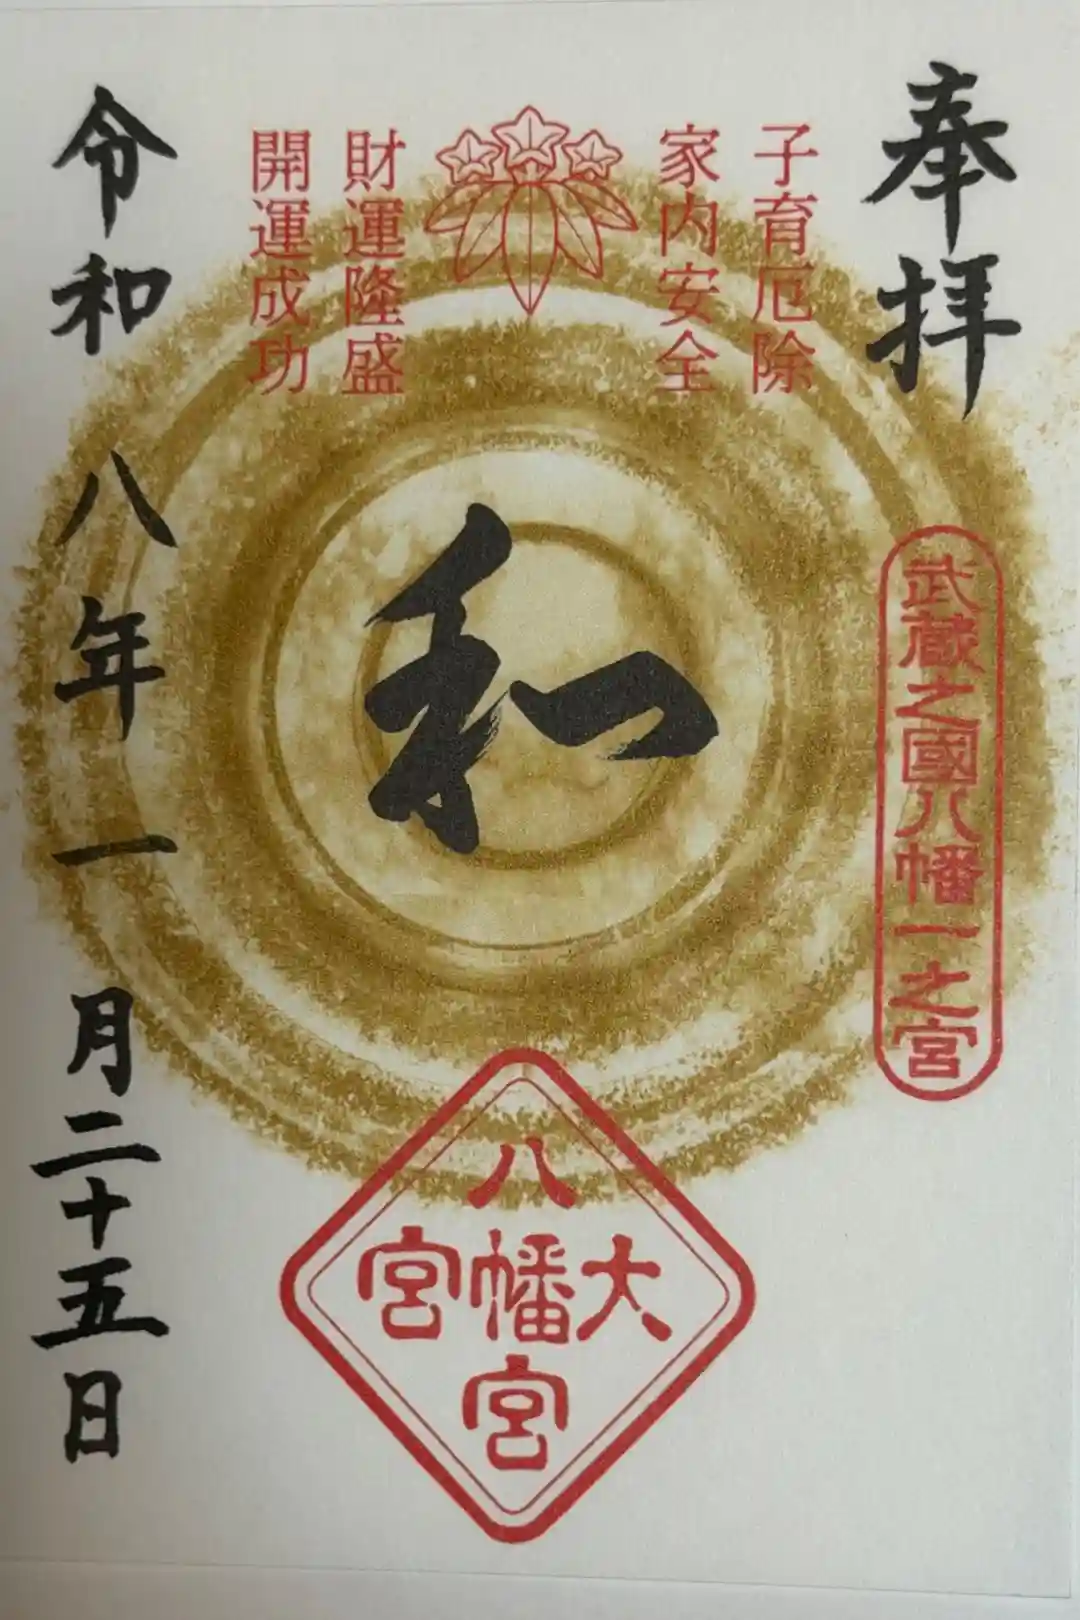 奉拝
武蔵之國八幡一之宮
子育厄除
家内安全
財運隆盛
開運成功
和
八幡宮
大幡宮
令和八年一月二十五日